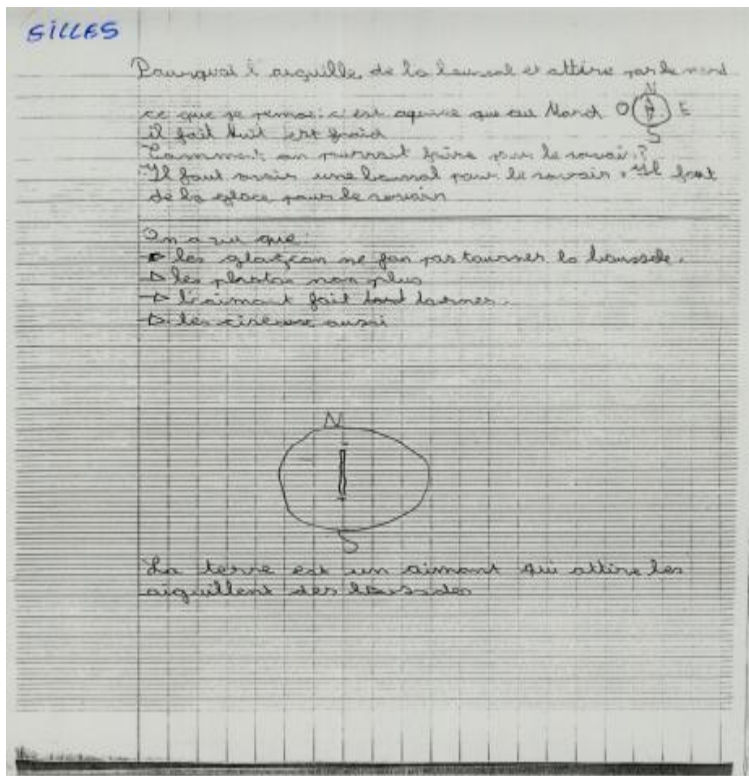 GILLES
Pourquoi l'aiguille de la boussol et attire par le nord
ce que je c'est que au Nord
N
O E
S
il fait Nuit est froid
Comment on pourrait faire pour le savoir ?
Il faut avoir une boussol pour le savoir. Il faut
de la glace pour le savoir
On a vu que :
les glaçcon ne fon pas tourner la boussole.
les photos non plus
l'aimant fait tout
les aussi
N
S
La terre est un aimant qui attire les
aiguillent des boussoles